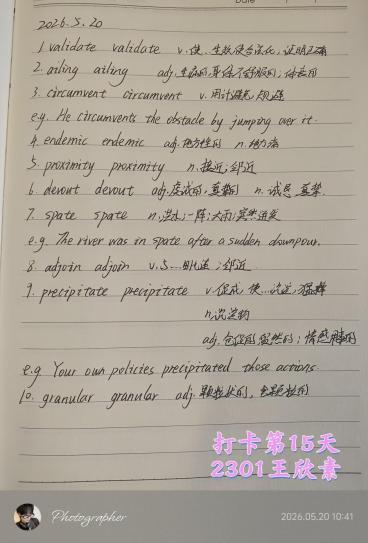 2026.5.20
1. validate validate v.使…生效,使合法化,证明正确
2. ailing ailing adj.生病的,身体不舒服的;体衰的
3. circumvent circumvent v.用计避免,规避
e.g. He circumvents the obstacle by jumping over it.
4. endemic endemic adj.地方性的 n.地方病
5. proximity proximity n.接近;邻近
6. devout devout adj.虔诚的,真挚的 n.
7. spate spate n.洪水;一阵;大雨;突然迸发
e.g. The river was in spate after a sudden downpour.
8. adjoin adjoin v.与…毗连;邻近
9. precipitate precipitate v.促成,使…沉淀;
n.沉淀物
adj.仓促的
e.g Your own policies precipitated those actions.
10. granular granular adj.颗粒状的,含颗粒的
打卡第15天
2301王欣素
Photographer
2026.05.20 10:41